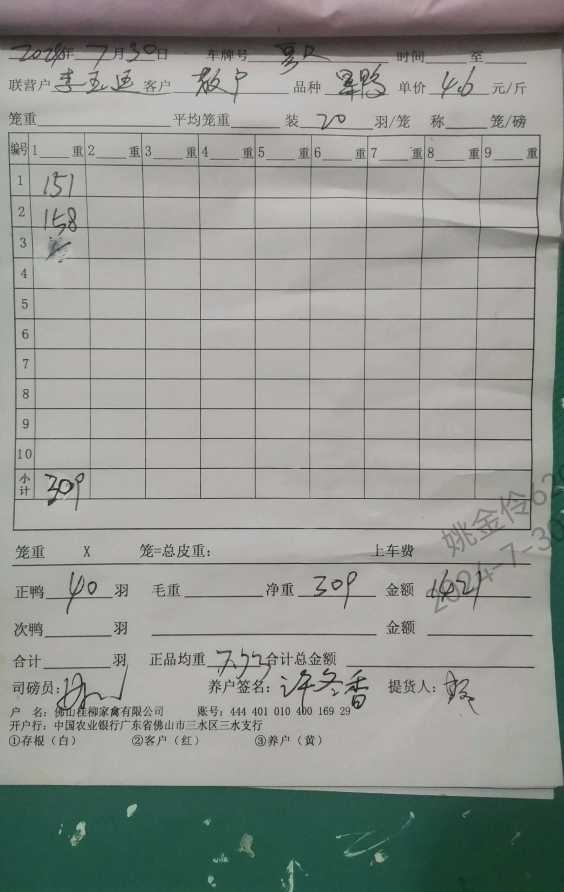 2024年 7月30日 车牌号 时间 至
联营户 李玉 客户 散户 品种 鸭 单价 4.6 元/斤
笼重 平均笼重 装 20 羽/笼 称 笼/磅
编号 1 重 2 重 3 重 4 重 5 重 6 重 7 重 8 重 9 重
1 151
2 158
3
4
5
6
7
8
9
10
小计 309
笼重 X 笼=总皮重: 上车费
正鸭 40 羽 毛重 净重 309 金额 1421
次鸭 羽 金额
合计 羽 正品均重 7.73 合计总金额
司磅员: 养户签名: 许冬香 提货人:
户 名: 佛山桂柳家禽有限公司 账号: 444 401 010 400 169 29
开户行: 中国农业银行广东省佛山市三水区三水支行
①存根（白） ②客户（红） ③养户（黄）
姚金伶620
2024-7-30